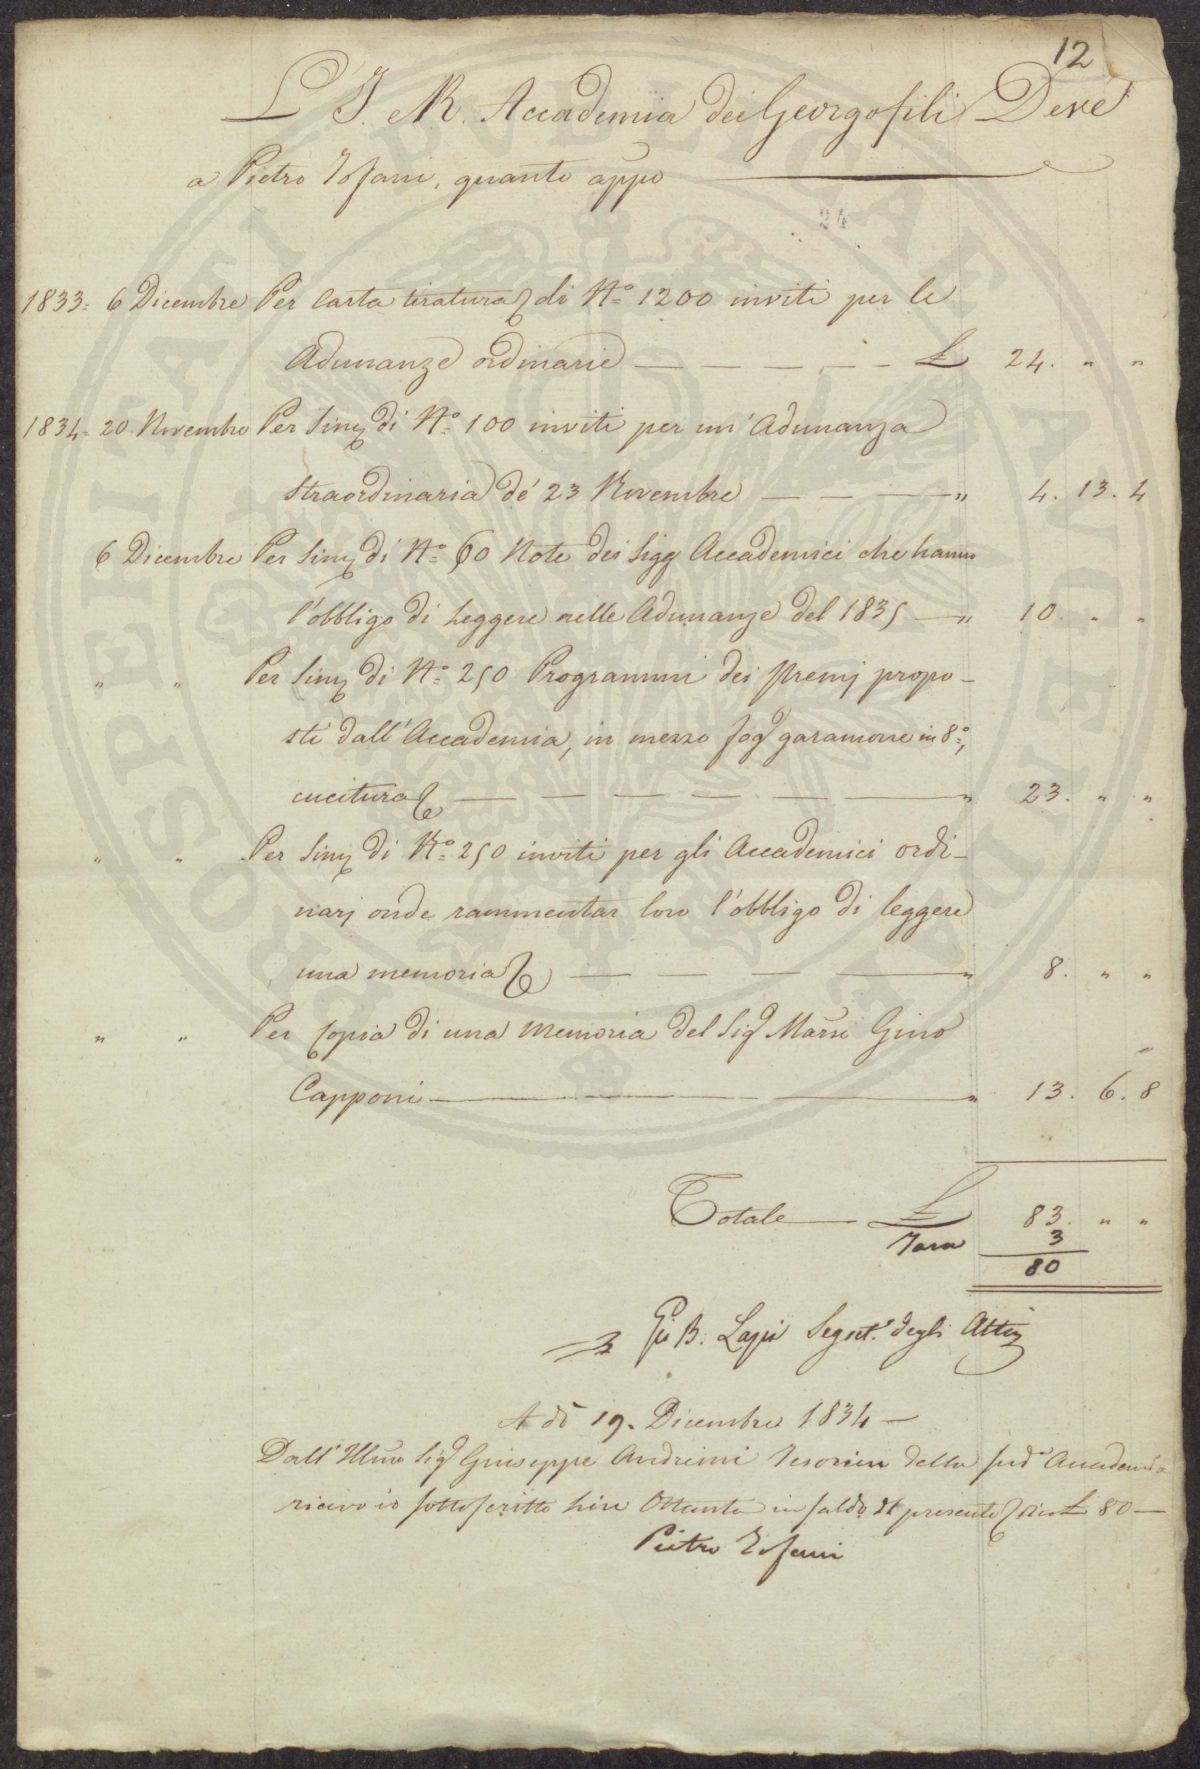 12
L'I. e R. Accademia dei Georgofili Deve
a Pietro Tofani, quanto appo
24
1833= 6 Dicembre Per Carta tiratura di N.° 1200 inviti per le
Adunanze ordinarie — — — — — £ 24. " "
1834= 20 Novembre Per Sim di N.° 100 inviti per un' Adunanza
Straordinaria de' 23 Novembre — — — — " 4. 13. 4
6 Dicembre Per Sim di N.° 60 Note dei Sigg Accademici che hanno
l'obbligo di Leggere nelle Adunanze del 1835 — " 10. " "
" " Per Sim di N.° 250 Programmi dei Premj propo-
sti dall'Accademia, in mezzo fog garamone in 8°,
cucitura — — — — — — " 23. " "
" " Per Sim di N.° 250 inviti per gli Accademici ordi-
narj onde rammentar loro l'obbligo di leggere
una memoria — — — — " 8. " "
" " Per Copia di una Memoria del Sig Marse Gino
Capponi — — — — " 13. 6. 8
Totale — £ 83. " "
Tara 3
80
Gio B. Lapi Segret.° degli Atti
A dì 19. Dicembre 1834 —
Dall' Illmo Sig Giuseppe Andreini Tesorier della sud.a Accademia
ricevo io sottoscritto Lire Ottanta in saldo del presente dico £ 80 —
Pietro Tofani
PROSPERITATI PUBLICAE AUGENDAE